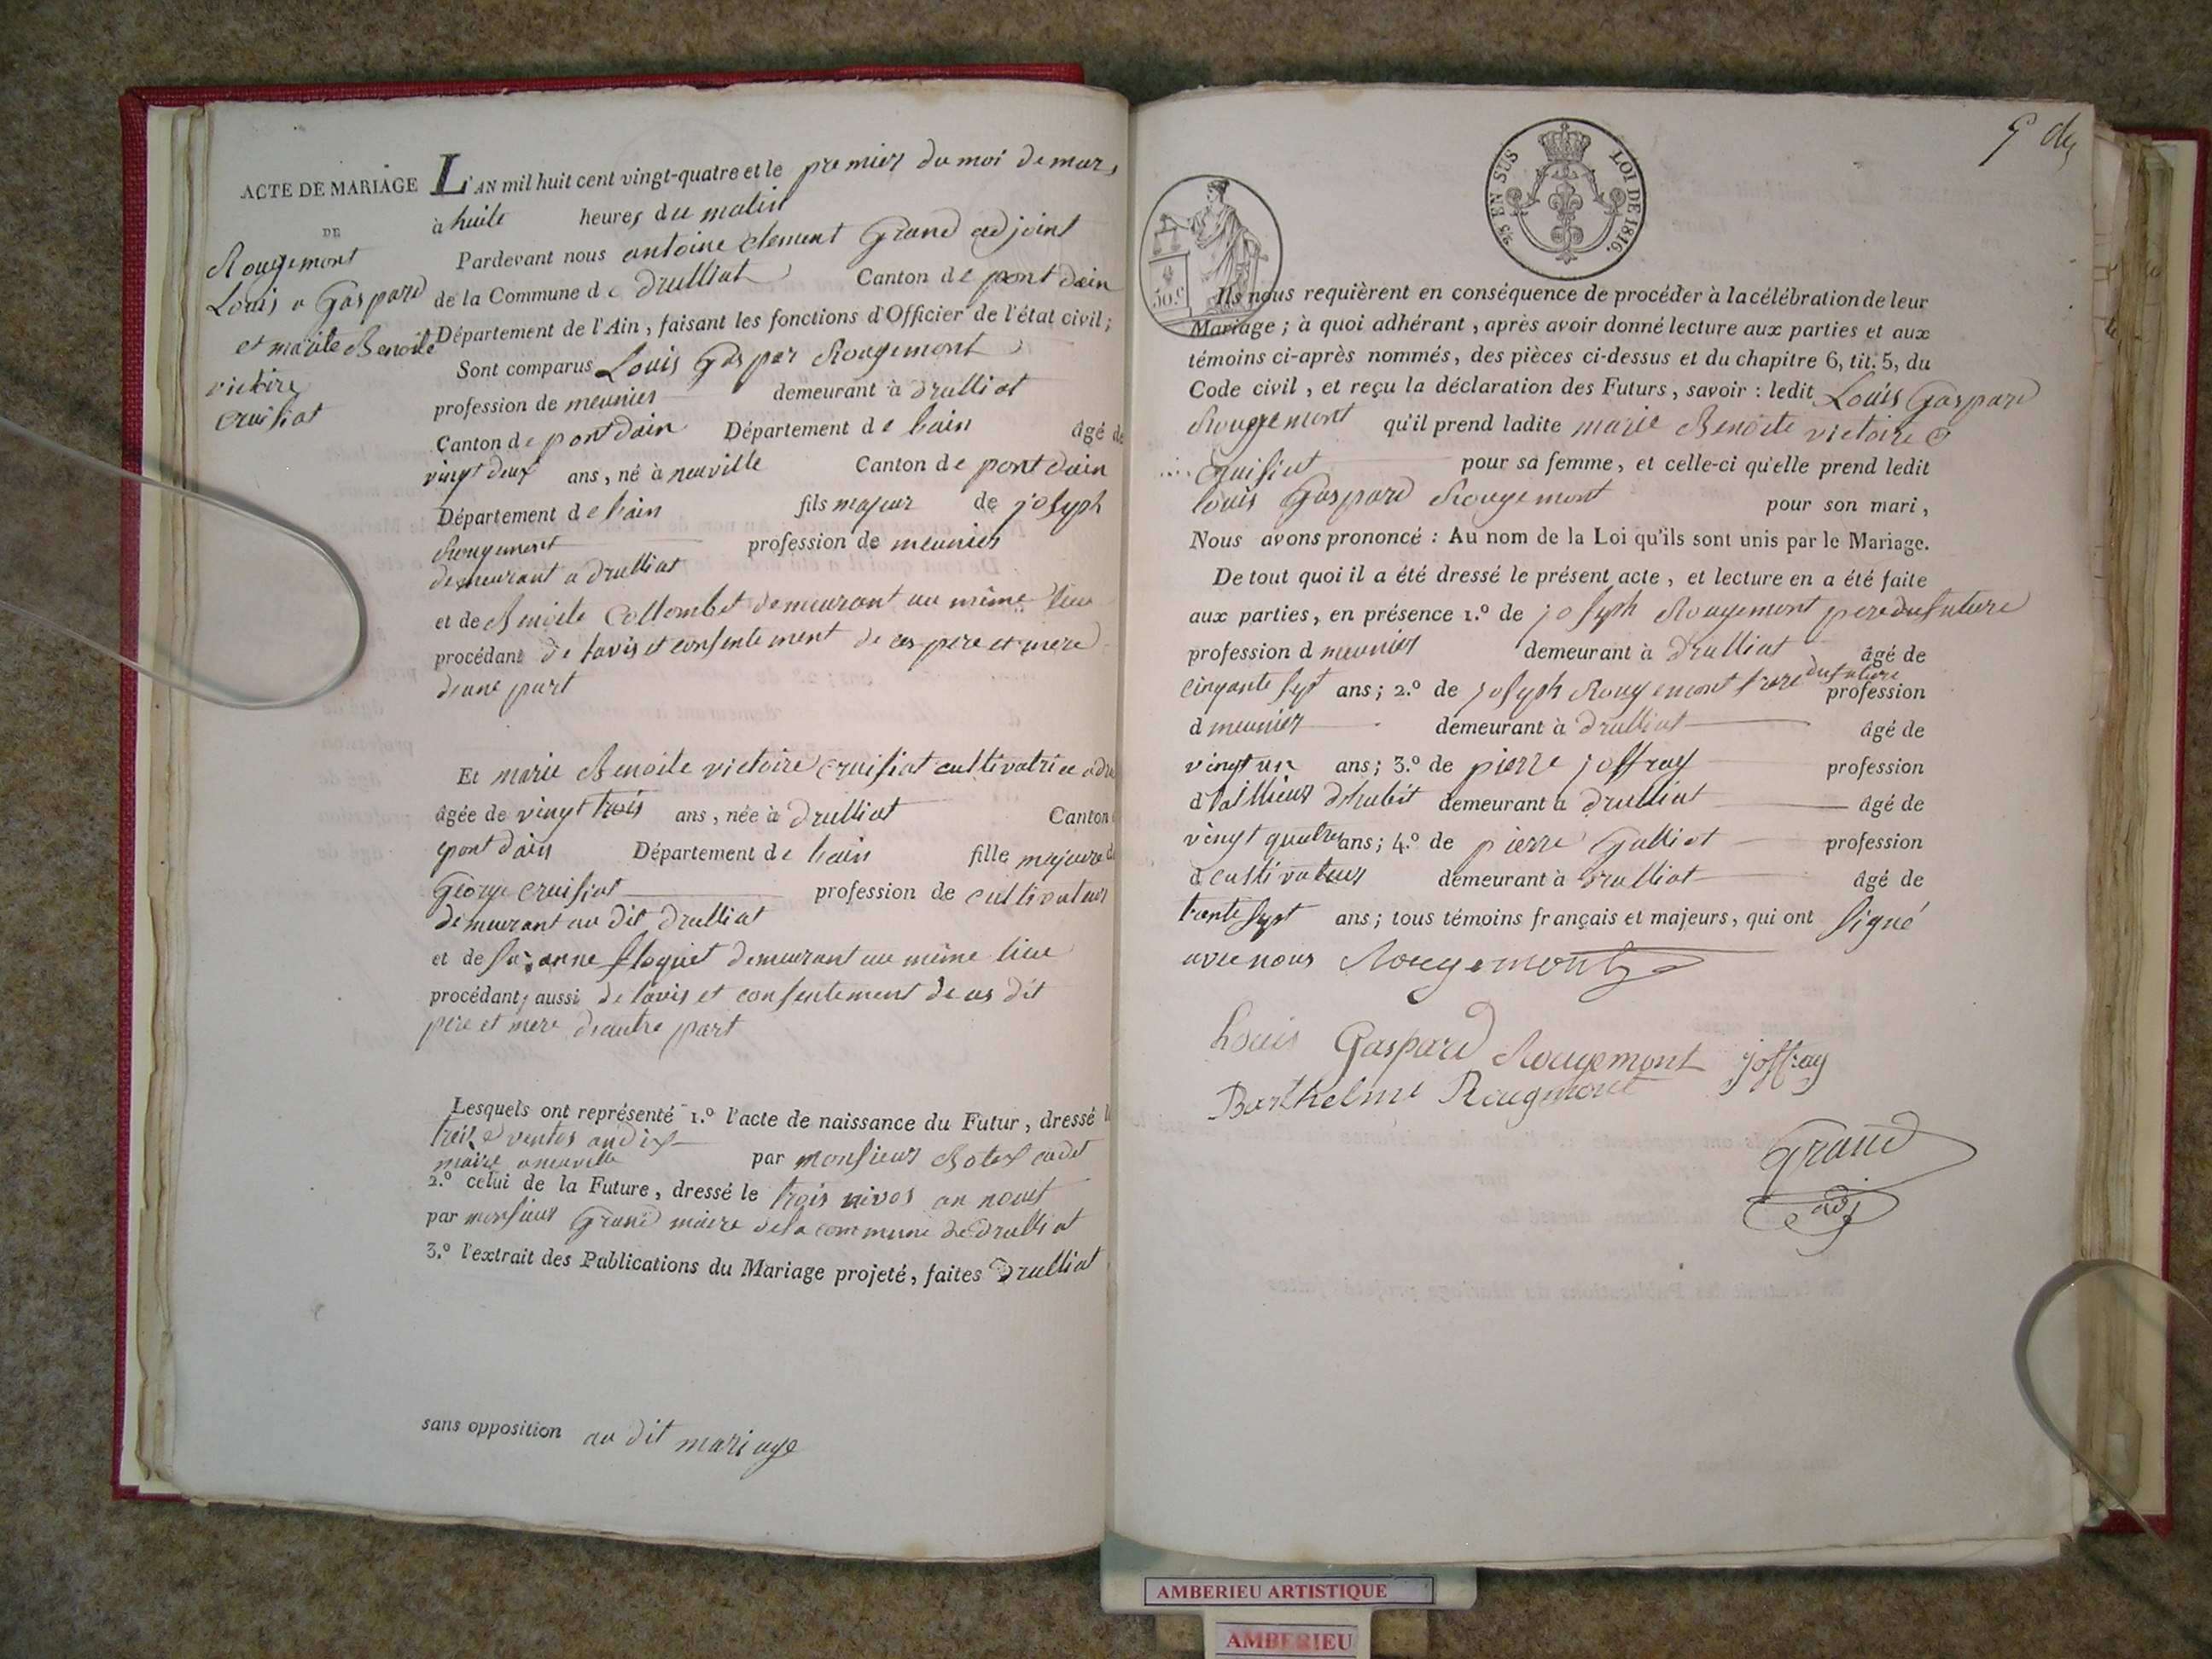 ACTE DE MARIAGE
DE
Rougemont
Louis a Gaspard
et marile Benoite
victire
cruisiat
L'AN mil huit cent vingt-quatre et le premier du moi de mars
à huile heures du matin
Pardevant nous antoine clement Grand adjoint
de la Commune de drulliat Canton de pont dain
Département de l'Ain, faisant les fonctions d'Officier de l'état civil;
Sont comparus Louis Gaspar Rougemont
profession de meunier demeurant à drulliat
Canton de pont dain Département de lain âgé de
vingt deux ans, né à neuville Canton de pont dain
Département de lain fils majeur de joseph
Rougemont profession de meunier
demeurant a drulliat
et de Benoite Collombet demeurant au même lieu
procédant de lavis et consentement de ces pere et mere
dune part
Et marie Benoite victoire cruisiat cultivatrice a dru
âgée de vingt trois ans, née à drulliat Canton
pont dain Département de lain fille majeure d
George cruisiat profession de cultivateur
demeurant au dit drulliat
et de suzanne floquet demeurant au même lieu
procédant, aussi de lavis et consentement de ces dit
pere et mere dautre part
Lesquels ont représenté 1.º l'acte de naissance du Futur, dressé l
treize ventos an dix
maire a neuville par monsieur Botex cadet
2.º celui de la Future, dressé le trois nivos an neuf
par monsieur Grand maire dela commune de drulliat
3.º l'extrait des Publications du Mariage projeté, faites drulliat
sans opposition au dit mariage
EN SUS LOI DE 1816.
50.c
Ils nous requièrent en conséquence de procéder à la célébration de leur
Mariage; à quoi adhérant, après avoir donné lecture aux parties et aux
témoins ci-après nommés, des pièces ci-dessus et du chapitre 6, tit. 5, du
Code civil, et reçu la déclaration des Futurs, savoir: ledit Louis Gaspard
Rougemont qu'il prend ladite marie Benoite victoire
cruisiat pour sa femme, et celle-ci qu'elle prend ledit
louis Gaspard Rougemont pour son mari,
Nous avons prononcé: Au nom de la Loi qu'ils sont unis par le Mariage.
De tout quoi il a été dressé le présent acte, et lecture en a été faite
aux parties, en présence 1.º de joseph Rougemont pere du future
profession d meunier demeurant à drulliat âgé de
cinqante sept ans; 2.º de joseph Rougemont frere du future profession
d meunier demeurant à drulliat âgé de
vingt un ans; 3.º de pierre joffray profession
d tallieur dhabit demeurant à drulliat âgé de
vingt quatre ans; 4.º de pierre Gulliot profession
d cultivateur demeurant à drulliat âgé de
trente sept ans; tous témoins français et majeurs, qui ont signé
avec nous Rougemont
Louis Gaspard Rougemont joffray
Barthelmi Rougmont
Grand
adj
AMBERIEU ARTISTIQUE
AMBERIEU